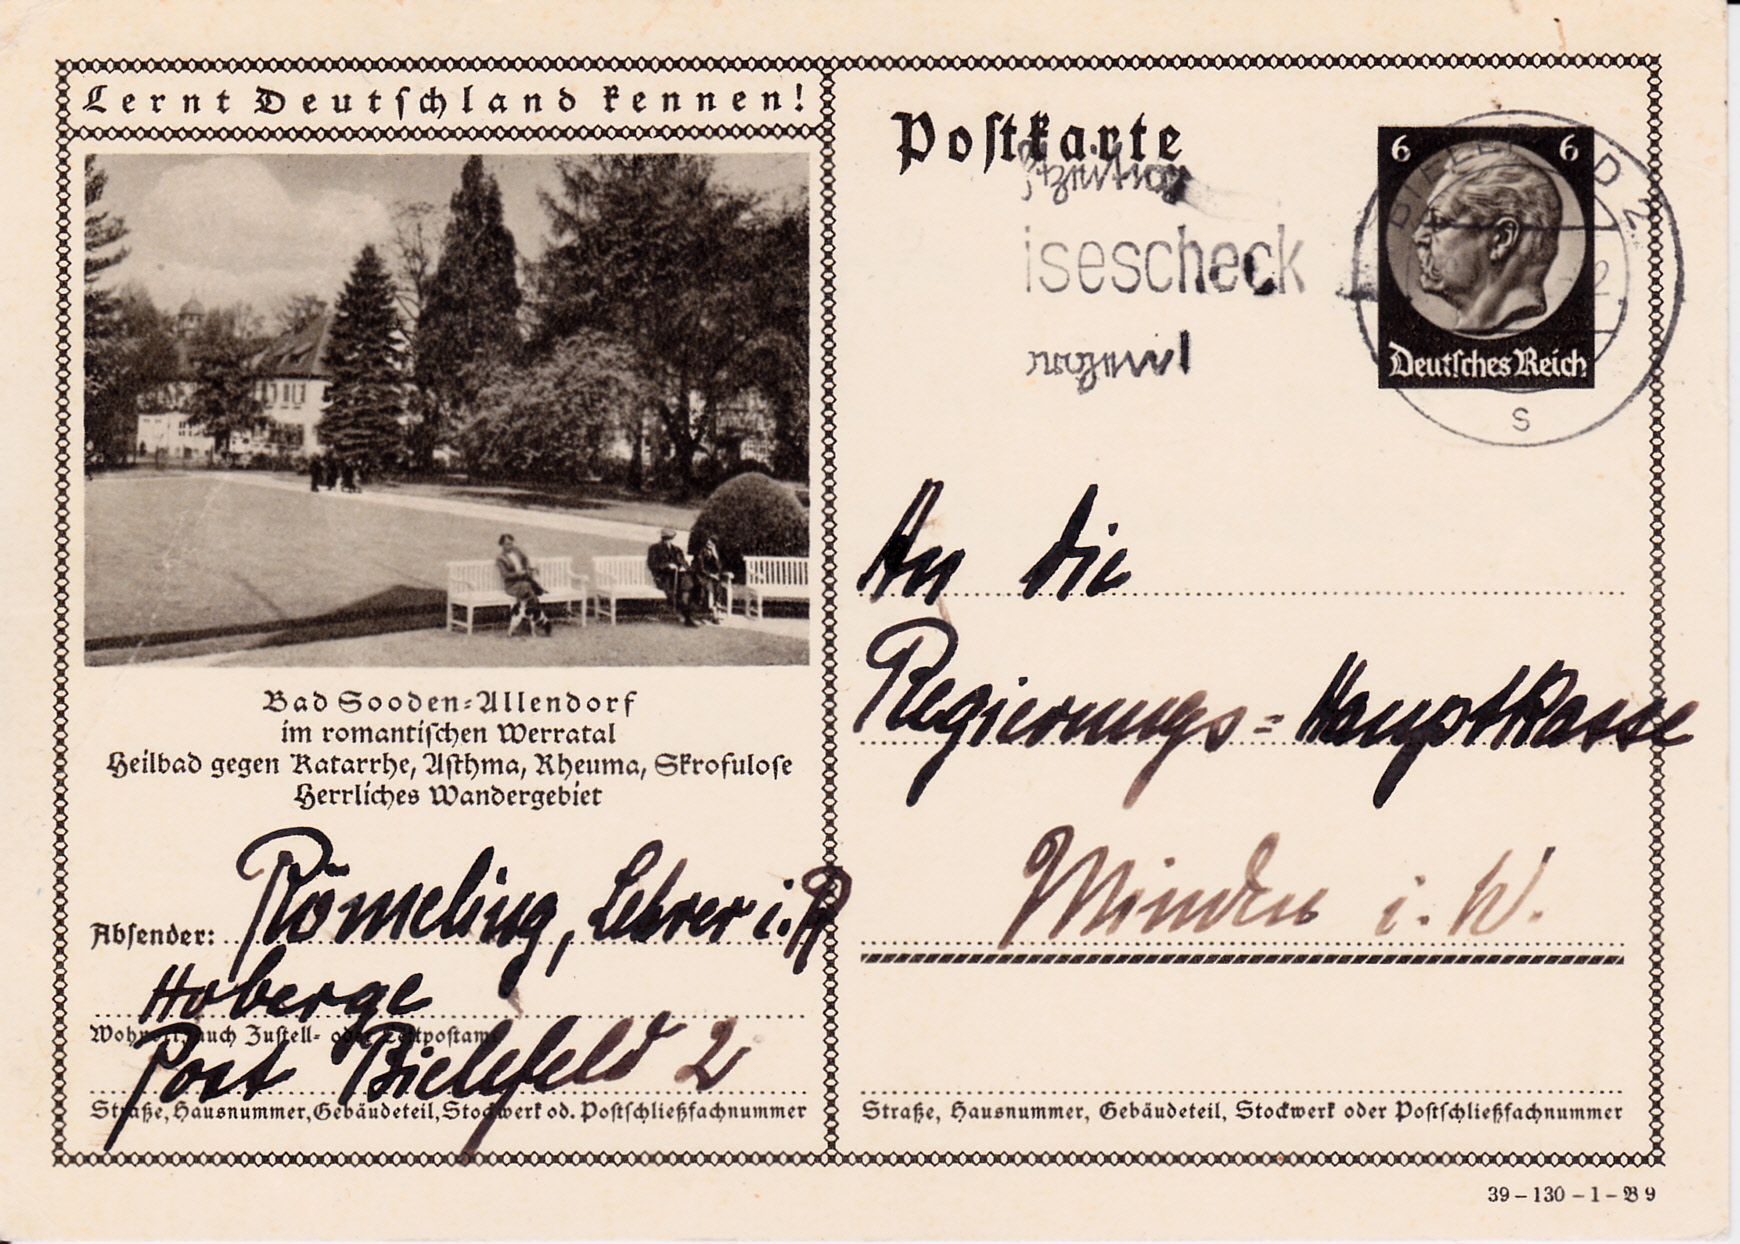 Lernt Deutschland kennen!
Bad Sooden-Allendorf
im romantischen Werratal
Heilbad gegen Katarrhe, Asthma, Rheuma, Skrofulose
Herrliches Wandergebiet
Absender: Römeling, Lehrer i. R
Hoberge
Wohnort, auch Zustell- oder Leitpostamt
Post Bielefeld 2
Straße, Hausnummer, Gebäudeteil, Stockwerk od. Postschließfachnummer
Postkarte
isescheck
6 6
Deutsches Reich
s
An die
Regierungs-Hauptkasse
Minden i. W.
Straße, Hausnummer, Gebäudeteil, Stockwerk oder Postschließfachnummer
39 – 130 – 1 – B 9